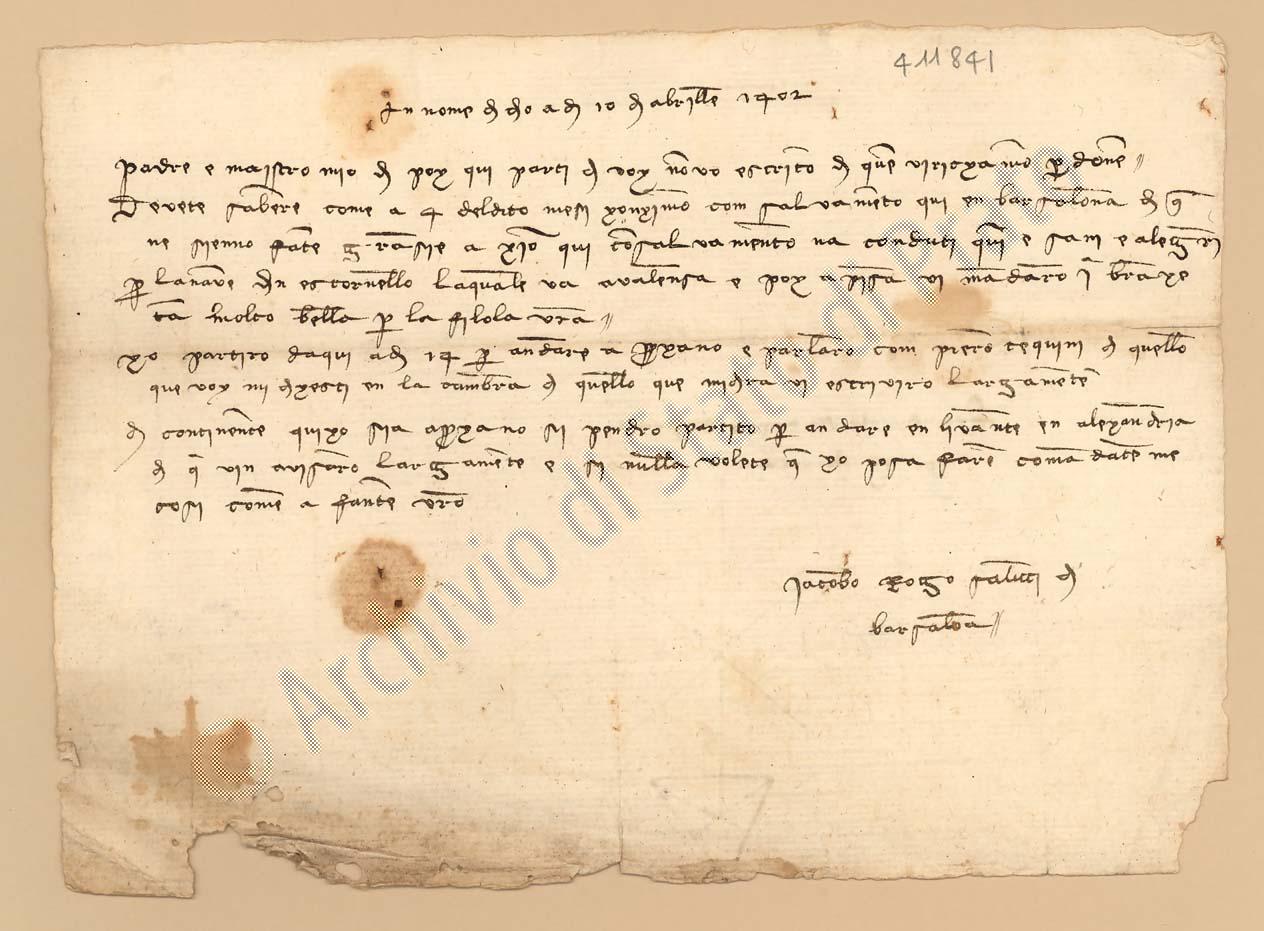 411841
In nome di dio a di 10 di abrille 1402
Padre e maistro mio di poy qui parti di voy no vo escrito di que viricxamo perdone //
Devete sabere come a 4 deldito mesi yonximo com salvameto qui en barsalona di q
ne sienno fate grasie a xio qui co salvamento na conduti qui e sani e alegri
per la nave dn estornello laquale va a valensa e poy a pissa vi madaro i braxe
ta molto bella per la filola vra //
yo partiro daqui a di 14 per andare a e parlaro com piero tequini di quello
que voy mi dixesti en la cambra di quello que mi dira vi escriviro largamente
di continente quiyo sia a si pendro partito per andare en livante en alexandria
di q vin avisaro largamente e si nulla volete q yo posa fare comadateme
cosi come a fante vro
Jacobo Rogo saluti di
barsaloa //
© Archivio di Stato di Prato